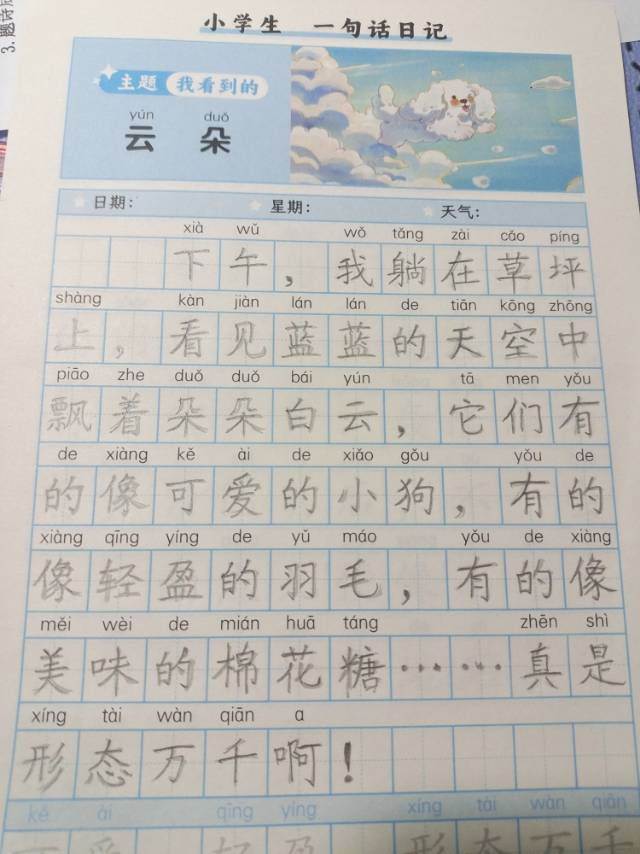 3.题诗
小学生 一句话日记
主题 我看到的
yún duǒ
云朵
日期: 星期: 天气:
xià wǔ wǒ tǎng zài cǎo píng
下午，我躺在草坪
shàng kàn jiàn lán lán de tiān kōng zhōng
上，看见蓝蓝的天空中
piāo zhe duǒ duǒ bái yún tā men yǒu
飘着朵朵白云，它们有
de xiàng kě ài de xiǎo gǒu yǒu de
的像可爱的小狗，有的
xiàng qīng yíng de yǔ máo yǒu de xiàng
像轻盈的羽毛，有的像
měi wèi de mián huā táng zhēn shì
美味的棉花糖……真是
xíng tài wàn qiān a
形态万千啊！
kě ài qīng yíng xíng tài wàn qiān
可爱 轻盈 形态万千